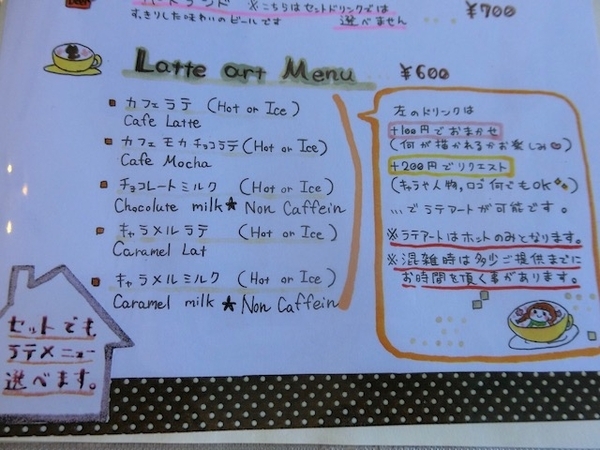 ハートランド ※こちらはセットドリンクでは
すっきりした味わいのビールです 選べません
¥700
Latte art Menu ¥600
カフェラテ (Hot or Ice)
Cafe Latte
カフェモカチョコラテ(Hot or Ice)
Cafe Mocha
チョコレートミルク (Hot or Ice)
Chocolute milk★Non Caffein
キャラメルラテ (Hot or Ice)
Caramel Lat
キャラメルミルク (Hot or Ice)
Caramel milk ★Non Caffein
左のドリンクは
+100円でおまかせ
(何が描かれるかお楽しみ)
+200円でリクエスト
(キャラや人物,ロゴ何でもOK)
...でラテアートが可能です。
※ラテアートはホットのみとなります。
※混雑時は多少ご提供までに
お時間を頂く事があります。
セットでも
ラテメニュー
選べます。